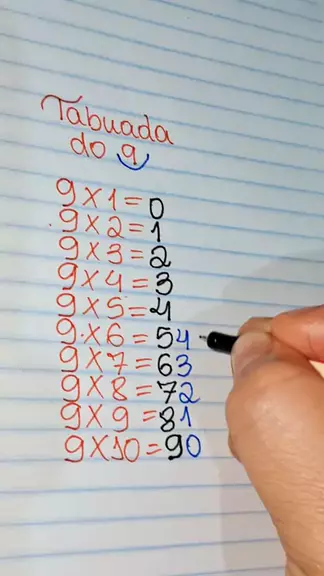 Tabuada
do 9
9×1=0
9×2=1
9×3=2
9×4=3
9×5=4
9×6=54
9×7=63
9×8=72
9×9=81
9×10=90